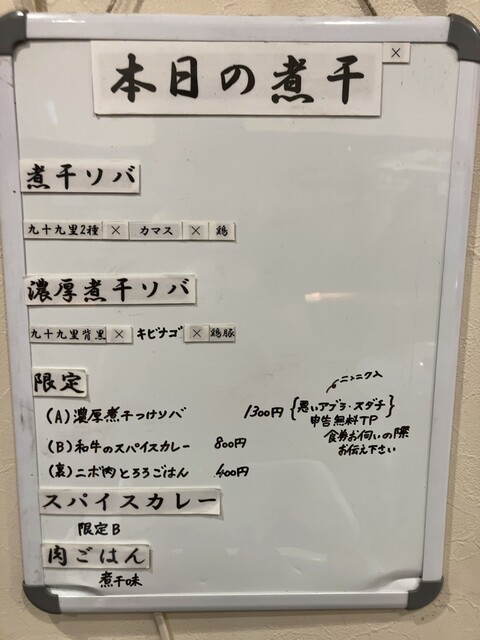 本日の煮干
×
煮干ソバ
九十九里2種 × カマス × 鶏
濃厚煮干ソバ
九十九里背黒 × キビナゴ × 鶏豚
限定
ニンニク入
(A)濃厚煮干つけソバ 1300円 {悪いアブラ・スダチ}
申告無料TP
(B)和牛のスパイスカレー 800円
食券お伺いの際
お伝え下さい
(裏)ニボ肉とろろごはん 400円
スパイスカレー
限定B
肉ごはん
煮干味